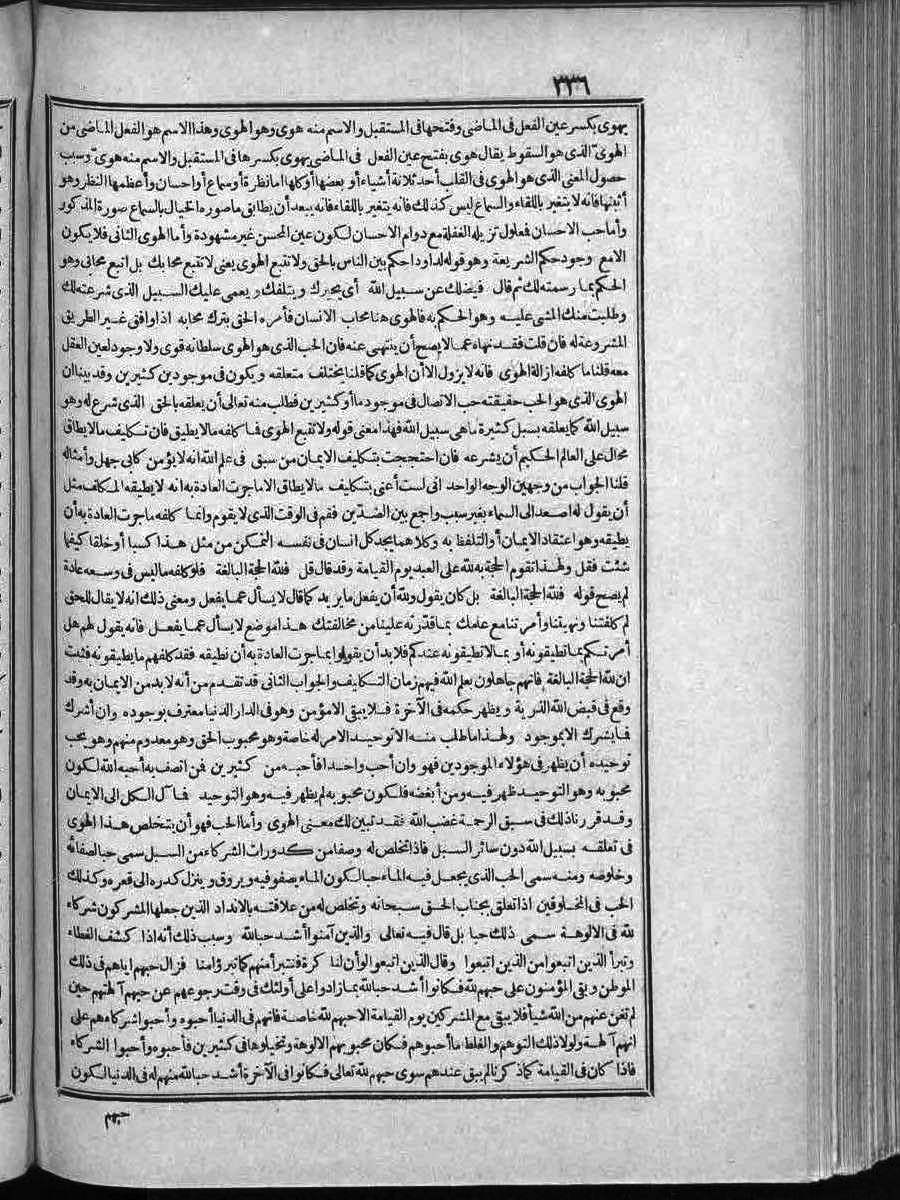 ٣٣٦
يهوى بكسر عين الفعل فى الماضى وفتحها فى المستقبل والاسم منه هوى وهو الهوى وهذا الاسم هو الفعل الماضى من
الهوىّ الذى هو السقوط يقال هوى بفتح عين الفعل فى الماضى يهوى بكسرها فى المستقبل والاسم منه هوىّ وسبب
حصول المعنى الذى هو الهوى فى القلب أحد ثلاثة أشياء أو بعضها أو كلها اما نظرة أو سماع أو احسان وأعظمها النظر وهو
أثبتها فانه لا يتغير باللقاء والسماع ليس كذلك فانه يتغير باللقاء فانه يبعد أن يطابق ما صوره الخيال بالسماع صورة المذكور
وأما حب الاحسان فمعلول تزيله الغفلة مع دوام الاحسان لكون عين المحسن غير مشهودة وأما الهوى الثانى فلا يكون
الا مع وجود حكم الشريعة وهو قوله لداود احكم بين الناس بالحق ولا تتبع الهوى يعنى لا تتبع محابك بل اتبع محابى وهو
الحكم بما رسمته لك ثم قال فيضلك عن سبيل الله أى يحيرك ويتلفك ويعمى عليك السبيل الذى شرعته لك
وطلبت منك المشى عليه وهو الحكم به فالهوى هنا محاب الانسان فأمره الحق بترك محابه اذا وافق غير الطريق
المشروعة له فان قلت فقد نهاه عما لا يصح أن ينتهى عنه فان الحب الذى هو الهوى سلطانه قوى ولا وجود لعين العقل
معه قلنا ما كلفه ازالة الهوى فانه لا يزول الا أن الهوى كما قلنا يختلف متعلقه ويكون فى موجودين كثيرين وقد بينا ان
الهوى الذى هو الحب حقيقته حب الاتصال فى موجود ما أو كثيرين فطلب منه تعالى أن يعلقه بالحق الذى شرع له وهو
سبيل الله كما يعلقه بسبل كثيرة ما هى سبيل الله فهذا معنى قوله ولا تتبع الهوى فما كلفه ما لا يطيق فان تكليف ما لا يطاق
محال على العالم الحكيم أن يشرعه فان احتججت بتكليف الايمان من سبق فى علم الله انه لا يؤمن كأبى جهل وأمثاله
قلنا الجواب من وجهين الوجه الواحد انى لست أعنى بتكليف ما لا يطاق الا ما جرت العادة به انه لا يطيقه المكلف مثل
أن يقول له اصعد الى السماء بغير سبب واجمع بين الضدّين فقم فى الوقت الذى لا يقوم وانما كلفه ما جرت العادة به أن
يطيقه وهو اعتقاد الايمان أو التلفظ به وكلاهما يجد كل انسان فى نفسه التمكن من مثل هذا كسبا أو خلقا كيفما
شئت فقل ولهذا تقوم الحجة به لله على العبد يوم القيامة وقد قال قل فلله الحجة البالغة فلو كلفه ما ليس فى وسعه عادة
لم يصح قوله فلله الحجة البالغة بل كان يقول ولله أن يفعل ما يريد كما قال لا يسأل عما يفعل ومعنى ذلك انه لا يقال للحق
لم كلفتنا ونهيتنا وأمرتنا مع علمك بما قدّرته علينا من مخالفتك هذا موضع لا يسأل عما يفعل فانه يقول لهم هل
أمرتكم بما تطيقونه أو بما لا تطيقونه عندكم فلا بد أن يقولوا بما جرت العادة به أن نطيقه فقد كلفهم ما يطيقونه فثبت
ان لله الحجة البالغة فانهم جاهلون بعلم الله فيهم زمان التكليف والجواب الثانى قد تقدم من أنه لا بد من الايمان به وقد
وقع فى قبض الله الذرية ويظهر حكمه فى الآخرة فلا يبقى الا مؤمن وهو فى الدار الدنيا معترف بوجوده وان أشرك
فما يشرك الا بموجود ولهذا ما طلب منه الا توحيد الامر له خاصة وهو محبوب الحق وهو معدوم منهم وهو يحب
توحيده أن يظهر فى هؤلاء الموجودين فهو وان أحب واحدا فأحبه من كثيرين فمن اتصف به أحبه الله لكون
محبوبه وهو التوحيد ظهر فيه ومن أبغضه فلكون محبوبه لم يظهر فيه وهو التوحيد فما آل الكل الى الايمان
وقد قررنا ذلك فى سبق الرحمة غضب الله فقد تبين لك معنى الهوى وأما الحب فهو أن يتخلص هذا الهوى
فى تعلقه بسبيل الله دون سائر السبل فاذا تخلص له وصفا من كدورات الشركاء من السبل سمى حبا لصفائه
وخلوصه ومنه سمى الحب الذى يجعل فيه الماء حبا لكون الماء يصفو فيه ويروق وينزل كدره الى قعره وكذلك
الحب فى المخلوقين اذا تعلق بجناب الحق سبحانه وتخلص له من علاقته بالانداد الذين جعلها المشركون شركاء
لله فى الالوهة سمى ذلك حبا بل قال فيه تعالى والذين آمنوا أشد حبا لله وسبب ذلك أنه اذا كشف الغطاء
وتبرأ الذين اتبعوا من الذين اتبعوا وقال الذين اتبعوا لو أن لنا كرة فنتبرأ منهم كما تبرؤا منا فزال حبهم اياهم فى ذلك
الموطن وبقى المؤمنون على حبهم لله فكانوا أشد حبا لله بما زادوا على أولئك فى وقت رجوعهم عن حبهم آلهتهم حين
لم تغن عنهم من الله شيأ فلا يبقى مع المشركين يوم القيامة الا حبهم لله خاصة فانهم فى الدنيا أحبوه وأحبوا شركاءهم على
انهم آلهة ولولا ذلك التوهم والغلط ما أحبوهم فكان محبوبهم الالوهة وتخيلوها فى كثيرين فأحبوه وأحبوا الشركاء
فاذا كان فى القيامة كما ذكرنا لم يبق عندهم سوى حبهم لله تعالى فكانوا فى الآخرة أشد حبا لله منهم له فى الدنيا لكون
حبهم